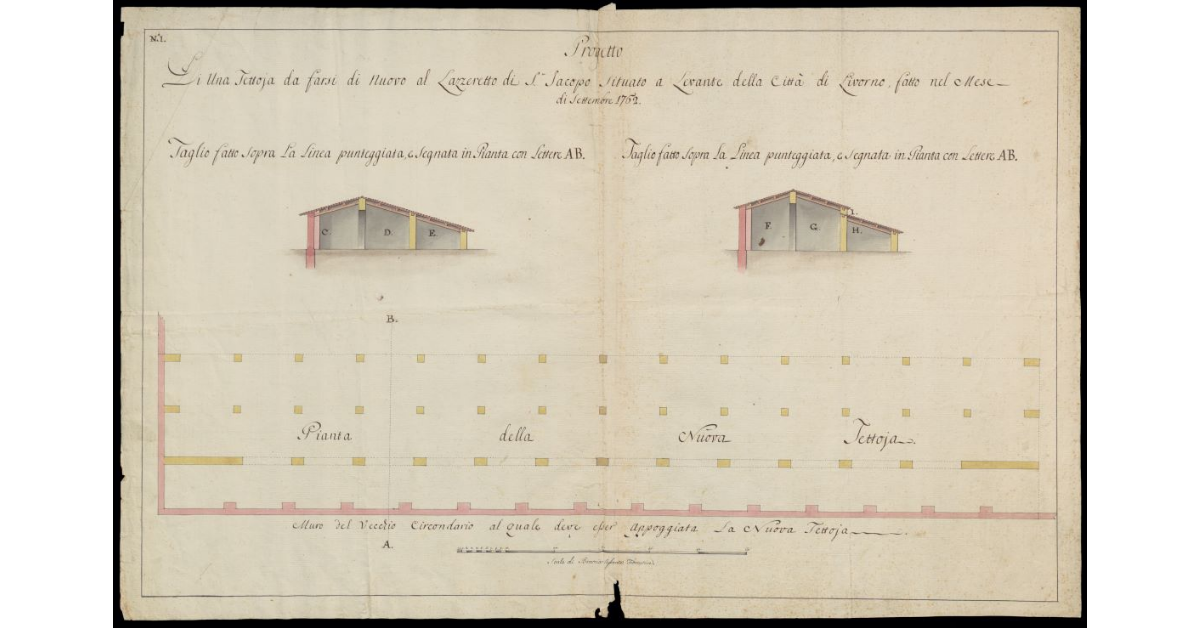 N.º 1.
Progetto
Di Una Tettoja da farsi di Nuovo al Lazzeretto di S.n Jacopo Situato a Levante della Città di Livorno, fatto nel Mese
di Settembre 1762.
Taglio fatto Sopra La Linea punteggiata, e Segnata in Pianta con Lettere AB.
Taglio fatto Sopra La Linea punteggiata, e Segnata in Pianta con Lettere AB.
C. D. E.
F. G. H. I.
B.
Pianta della Nuova Tettoja
Muro del Vecchio Circondario al quale deve esser Appoggiata La Nuova Tettoja
A.
Scala di